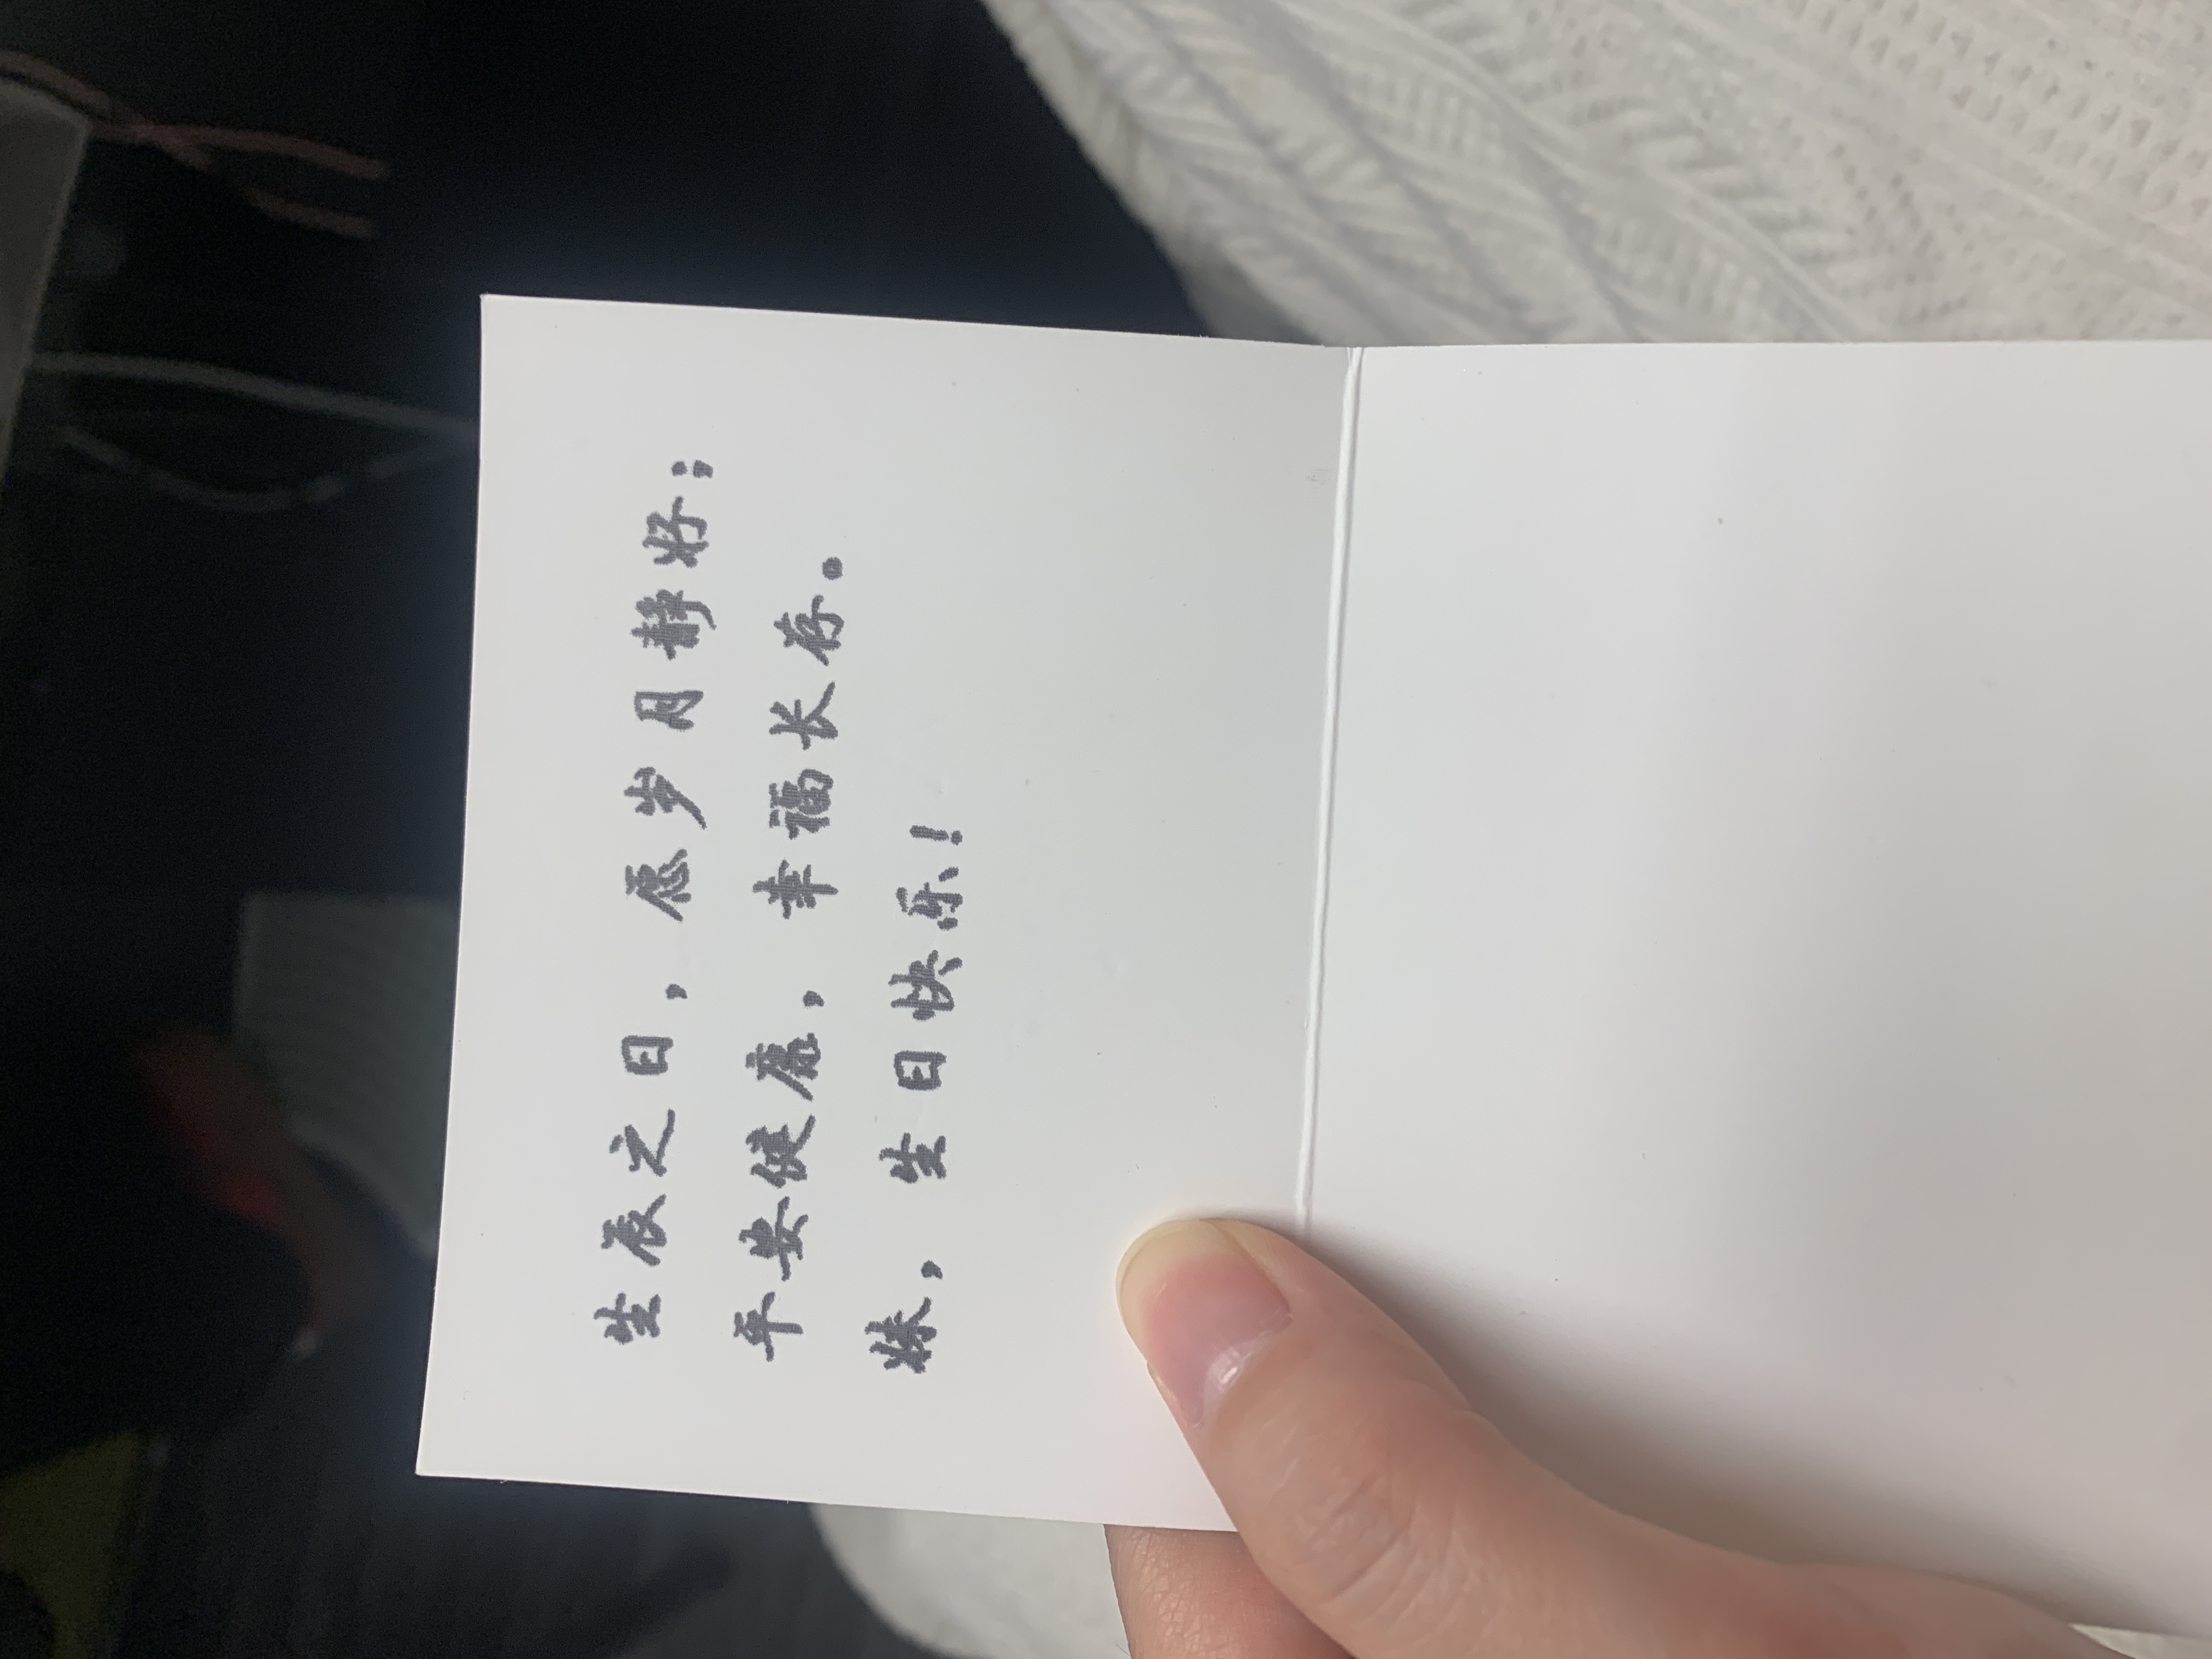 生辰之日，愿岁月静好；
平安健康，幸福长存。
妹，生日快乐！